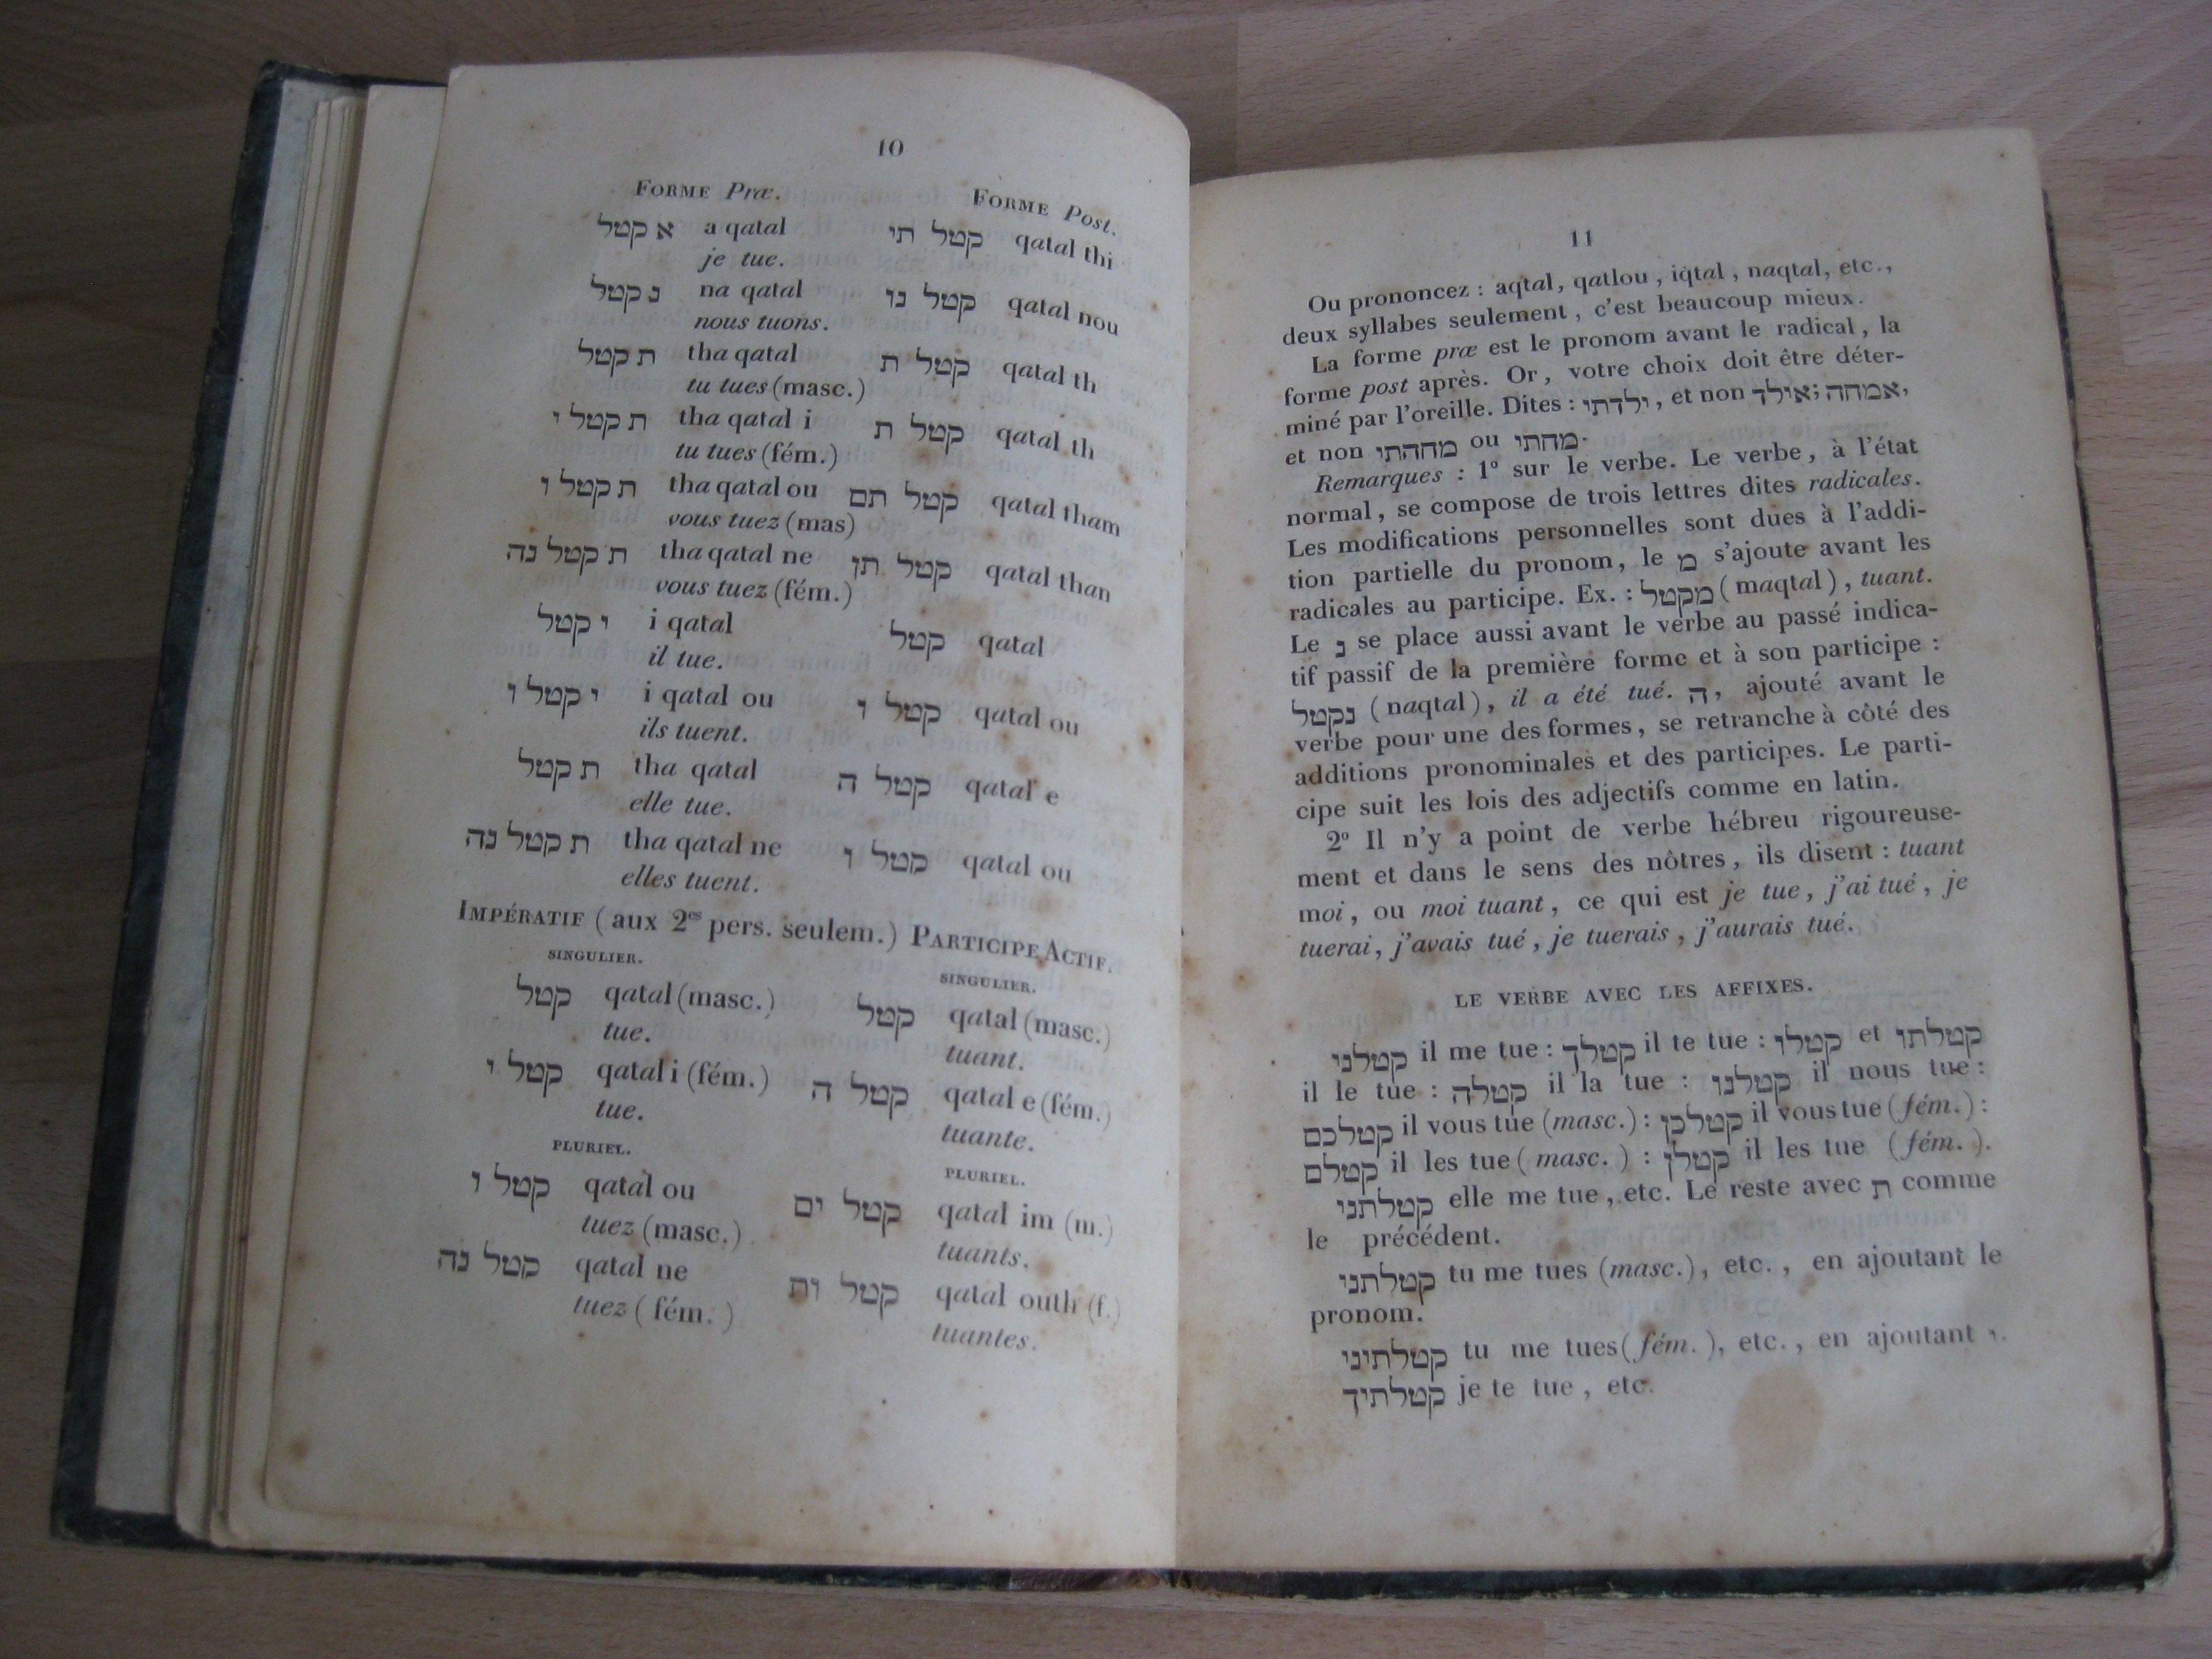 10
FORME Præ. FORME Post.
א קטל a qatal קטל תי qatal thi
je tue.
נ קטל na qatal קטל נו qatal nou
nous tuons.
ת קטל tha qatal קטל ת qatal th
tu tues (masc.)
ת קטל י tha qatal i קטל ת qatal th
tu tues (fém.)
ת קטל ו tha qatal ou קטל תם qatal tham
vous tuez (mas)
ת קטל נה tha qatal ne קטל תן qatal than
vous tuez (fém.)
י קטל i qatal קטל qatal
il tue.
י קטל ו i qatal ou קטל ו qatal ou
ils tuent.
ת קטל tha qatal קטל ה qatal e
elle tue.
ת קטל נה tha qatal ne קטל ו qatal ou
elles tuent.
IMPÉRATIF (aux 2es pers. seulem.) PARTICIPE ACTIF.
SINGULIER. SINGULIER.
קטל qatal (masc.) קטל qatal (masc.)
tue. tuant.
קטל י qatal i (fém.) קטל ה qatal e (fém.)
tue. tuante.
PLURIEL. PLURIEL.
קטל ו qatal ou קטל ים qatal im (m.)
tuez (masc.) tuants.
קטל נה qatal ne קטל ות qatal outh (f.)
tuez (fém.) tuantes.
11
Ou prononcez : aqtal, qatlou, iqtal, naqtal, etc.,
deux syllabes seulement, c'est beaucoup mieux.
La forme præ est le pronom avant le radical, la
forme post après. Or, votre choix doit être déter-
miné par l'oreille. Dites : ילדתי, et non אולד; אמחה,
et non מחהתי ou מחתי.
Remarques : 1° sur le verbe. Le verbe, à l'état
normal, se compose de trois lettres dites radicales.
Les modifications personnelles sont dues à l'addi-
tion partielle du pronom, le מ s'ajoute avant les
radicales au participe. Ex. : מקטל (maqtal), tuant.
Le נ se place aussi avant le verbe au passé indica-
tif passif de la première forme et à son participe :
נקטל (naqtal), il a été tué. ה, ajouté avant le
verbe pour une des formes, se retranche à côté des
additions pronominales et des participes. Le parti-
cipe suit les lois des adjectifs comme en latin.
2° Il n'y a point de verbe hébreu rigoureuse-
ment et dans le sens des nôtres, ils disent : tuant
moi, ou moi tuant, ce qui est je tue, j'ai tué, je
tuerai, j'avais tué, je tuerais, j'aurais tué.
LE VERBE AVEC LES AFFIXES.
קטלני il me tue : קטלך il te tue : קטלו et קטלתו
il le tue : קטלה il la tue : קטלנו il nous tue :
קטלכם il vous tue (masc.) : קטלכן il vous tue (fém.) :
קטלם il les tue (masc.) : קטלן il les tue (fém.).
קטלתני elle me tue, etc. Le reste avec ת comme
le précédent.
קטלתני tu me tues (masc.), etc., en ajoutant le
pronom.
קטלתיני tu me tues (fém.), etc., en ajoutant י.
קטלתיך je te tue, etc.